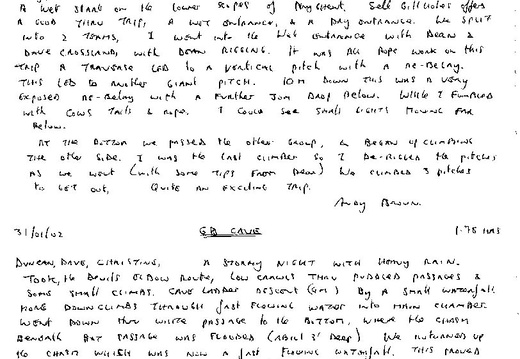 A WET START ON THE LOWER SLOPES OF PENYGHENT. SELL GILL HOLES OFFERS
A GOOD THRU TRIP, A WET ENTRANCE, & A DRY ENTRANCE. WE SPLIT
INTO 2 TEAMS, I WENT INTO THE WET ENTRANCE WITH DEAN &
DAVE CROSSLAND, WITH DEAN RIGGING. IT WAS ALL ROPE WORK ON THIS
TRIP A TRAVERSE LED TO A VERTICAL PITCH WITH A RE-BELAY.
THIS LED TO ANOTHER GIANT PITCH. 10M DOWN THIS WAS A VERY
EXPOSED RE-BELAY WITH A FURTHER 30M DROP BELOW. WHILE I FUMBLED
WITH COWS TAILS & ROPE, I COULD SEE SMALL LIGHTS MOVING FAR
BELOW.
AT THE BOTTOM WE PASSED THE OTHER GROUP, & BEGAN UP CLIMBING
THE OTHER SIDE. I WAS THE LAST CLIMBER SO I DE-RIGGED THE PITCHES
AS WE WENT (WITH SOME TIPS FROM DEAN) WE CLIMBED 3 PITCHES
TO GET OUT, QUITE AN EXCITING TRIP.
ANDY BROWN.
31/01/02 GB CAVE 1.75 HRS
DUNCAN, DAVE, CHRISTINE, A STORMY NIGHT WITH HEAVY RAIN.
TOOK THE DEVILS ELBOW ROUTE, LOW CRAWLS THRU PUDDLED PASSAGES &
SOME SMALL CLIMBS. CAVE LADDER DESCENT (6M) BY A SMALL WATERFALL
MORE DOWNCLIMBS THROUGH FAST FLOWING WATER INTO MAIN CHAMBER
WENT DOWN THRU WHITE PASSAGE TO THE BOTTOM, WHERE THE CHASM
BENEATH BAT PASSAGE WAS FLOODED (ABOUT 3' DEEP) WE RETURNED UP
THE CHASM WHICH WAS NOW A FAST FLOWING WATERFALL. THIS PROVED